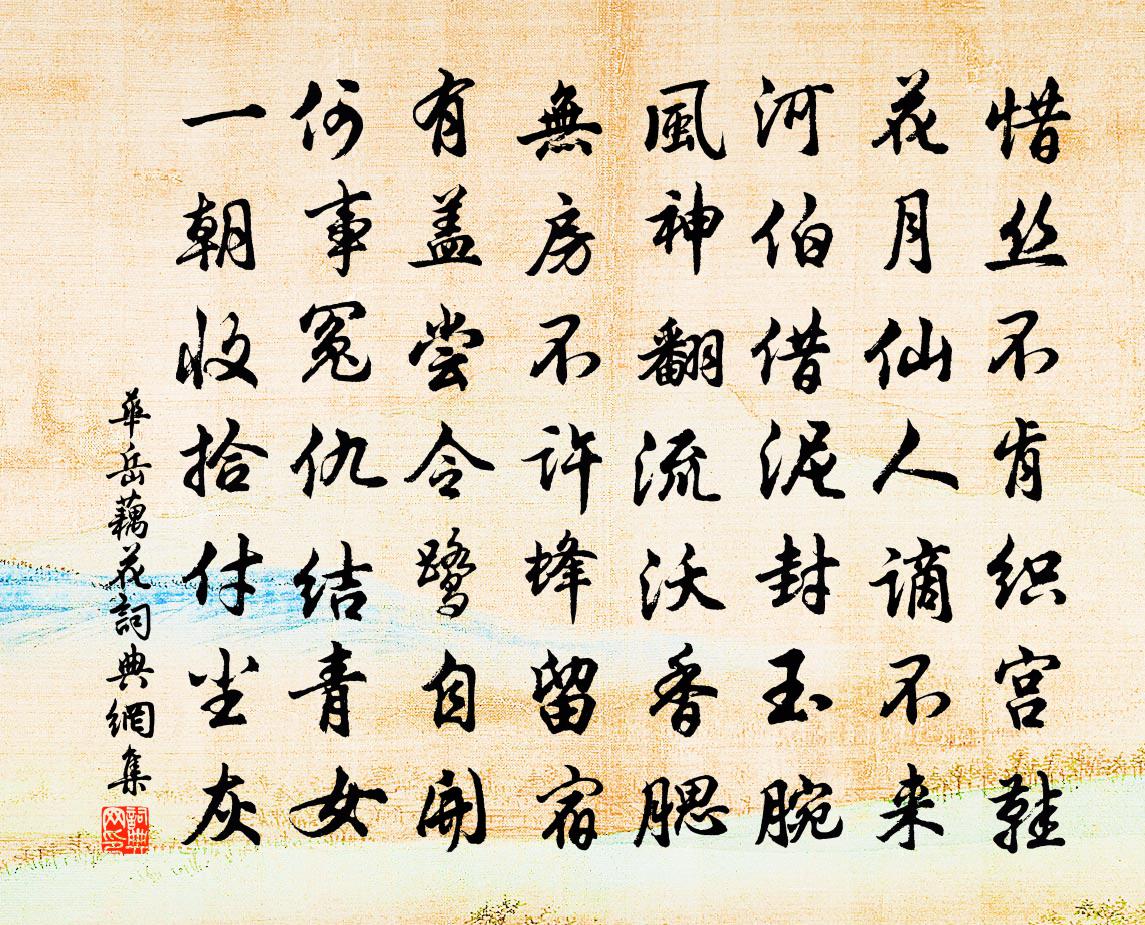 惜丝不肯织宫鞋
花月仙人谪不来
河伯借泥封玉腕
風神翻流沃香腮
無房不许蜂留宿
有盖尝令鹭自開
何事冤仇结青女
一朝收拾付尘灰
華岳藕花詞典網集
詞典網印